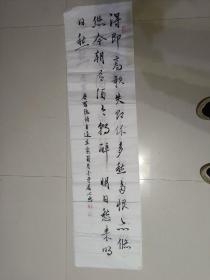 得即高歌失即休多愁多恨亦悠
悠今朝有酒今朝醉明日愁来明
日愁
罗隐诗自遣